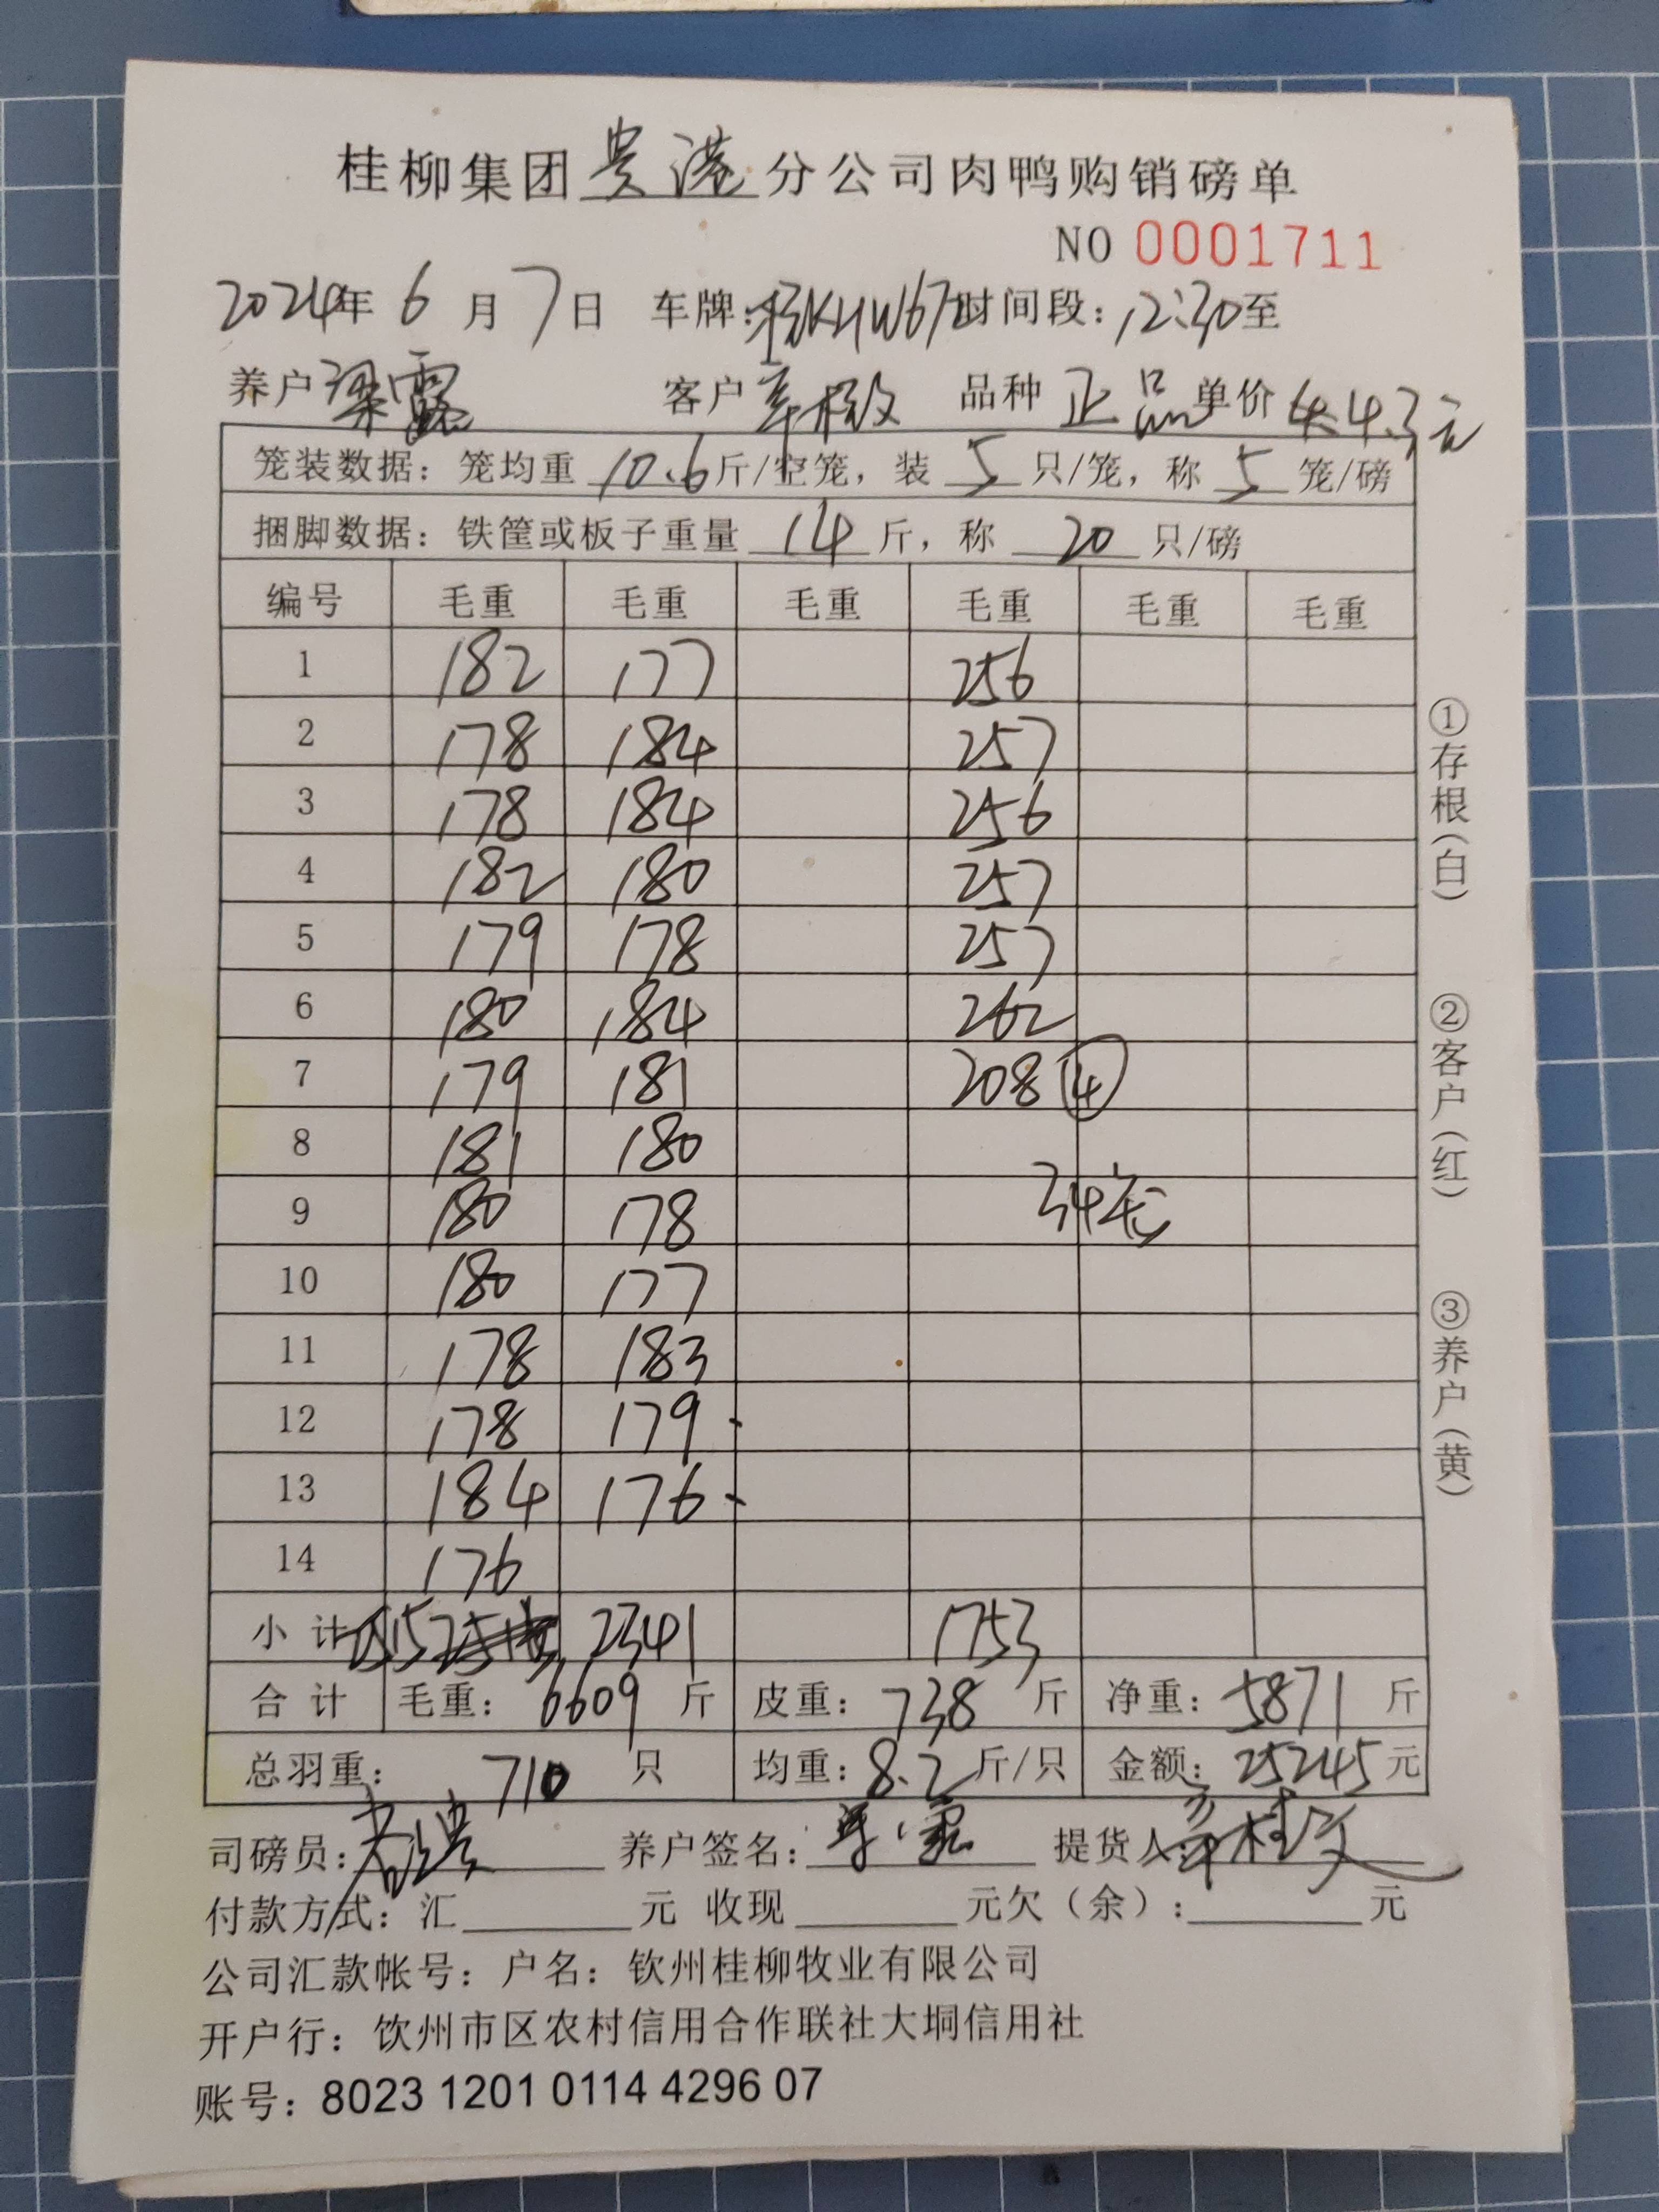 桂柳集团贵港分公司肉鸭购销磅单
NO 0001711
2024年 6 月 7 日 车牌： 时间段：12:30至
养户 梁露 客户 品种 正品 单价 4.3元
笼装数据：笼均重 10.6 斤/空笼，装 5 只/笼，称 5 笼/磅
捆脚数据：铁筐或板子重量 14 斤，称 20 只/磅
编号 毛重 毛重 毛重 毛重 毛重 毛重
1 182 177 256
2 178 184 257
3 178 184 256
4 182 180 257
5 179 178 257
6 180 184 262
7 179 181 208 ④
8 181 180
9 180 178 34笼
10 180 177
11 178 183
12 178 179
13 184 176
14 176
小 计 2515 2341 1753
合 计 毛重：6609 斤 皮重：738 斤 净重：5871 斤
总羽重：710 只 均重：8.2 斤/只 金额：25245 元
司磅员： 养户签名： 提货人：
付款方式：汇 元 收现 元欠（余）： 元
公司汇款帐号：户名：钦州桂柳牧业有限公司
开户行：钦州市区农村信用合作联社大垌信用社
账号：8023 1201 0114 4296 07
①存根（白）
②客户（红）
③养户（黄）